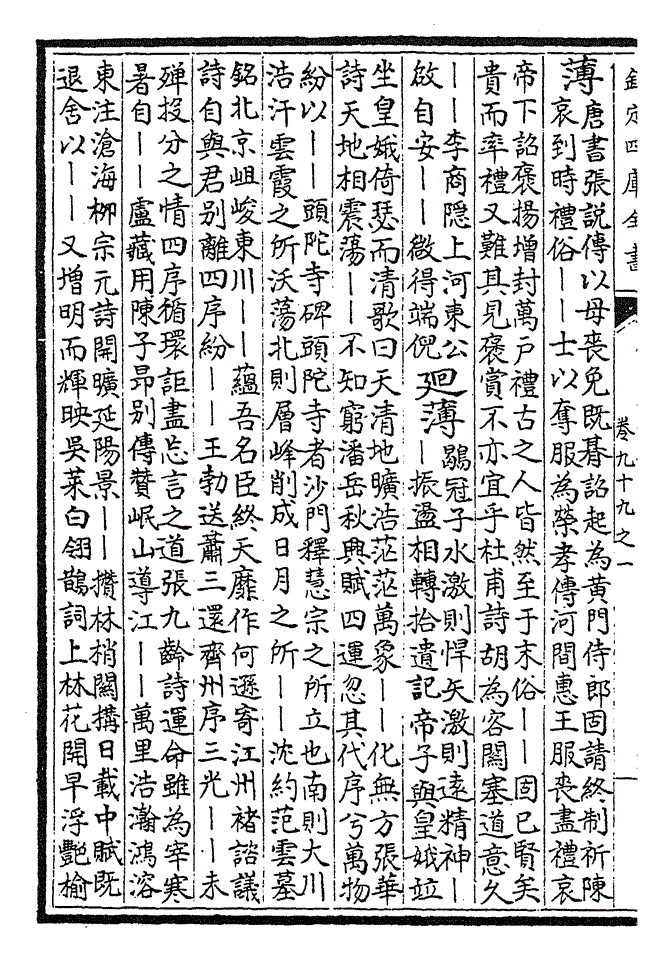 欽定四庫全書
卷九十九之一
薄
唐書張說傳以母喪免既朞詔起為黄門侍郎固請終制祈陳
哀到時禮俗——士以奪服為榮孝傳河間惠王服喪盡禮哀
帝下詔褒揚增封萬户禮古之人皆然至于末俗——固已賢矣
貴而率禮又難其見褒賞不亦宜乎杜甫詩胡為客關塞道意久
——李商隱上河東公
啟自安——微得端倪
廻薄
鶡冠子水激則悍矢激則遠精神—
—振盪相轉拾遺記帝子與皇娥竝
坐皇娥倚瑟而清歌曰天清地曠浩茫茫萬象——化無方張華
詩天地相震蕩——不知窮潘岳秋興賦四運忽其代序兮萬物
紛以——頭陀寺碑頭陀寺者沙門釋慧宗之所立也南則大川
浩汗雲霞之所沃蕩北則層峰削成日月之所——沈約范雲墓
銘北京岨峻東川——蘊吾名臣終天靡作何遜寄江州褚諮議
詩自與君别離四序紛——王勃送蕭三還齊州序三光——未
殫投分之情四序循環詎盡忘言之道張九齡詩運命雖為宰寒
暑自——盧藏用陳子昻别傳贊岷山導江——萬里浩瀚鴻溶
東注滄海栁宗元詩開曠延陽景——攢林梢闕搆日載中賦既
退舍以——又增明而輝映吳萊白翎鵲詞上林花開早浮艷榆